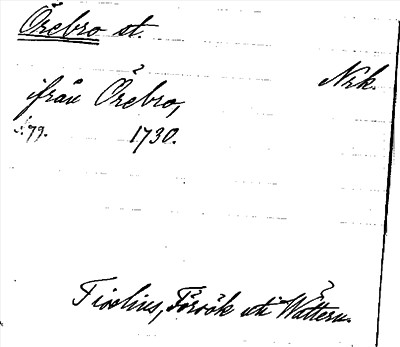 Örebro st.
Nrk.
ifrån Örebro,
s. 79. 1730.
Tiselius, Försök uti Wättern.